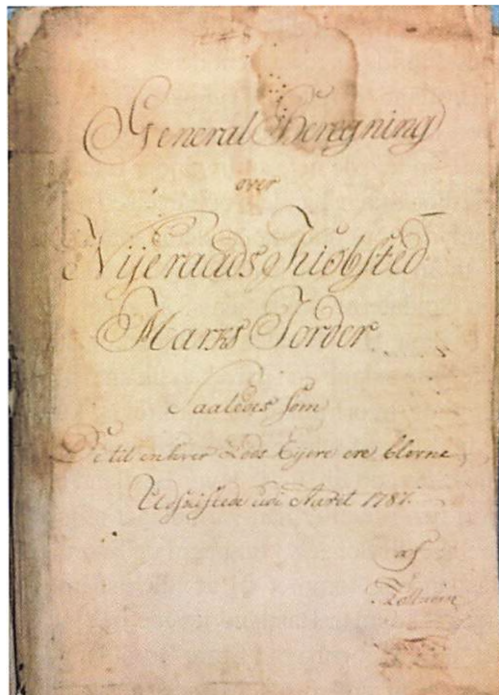 General Beregning
over
Nijeraads Kiøbsted
Marks Jorder
Saaledes som
De til enhver Lods Eijere ere blevne
Udskiftede udi Aaret 1787.
af